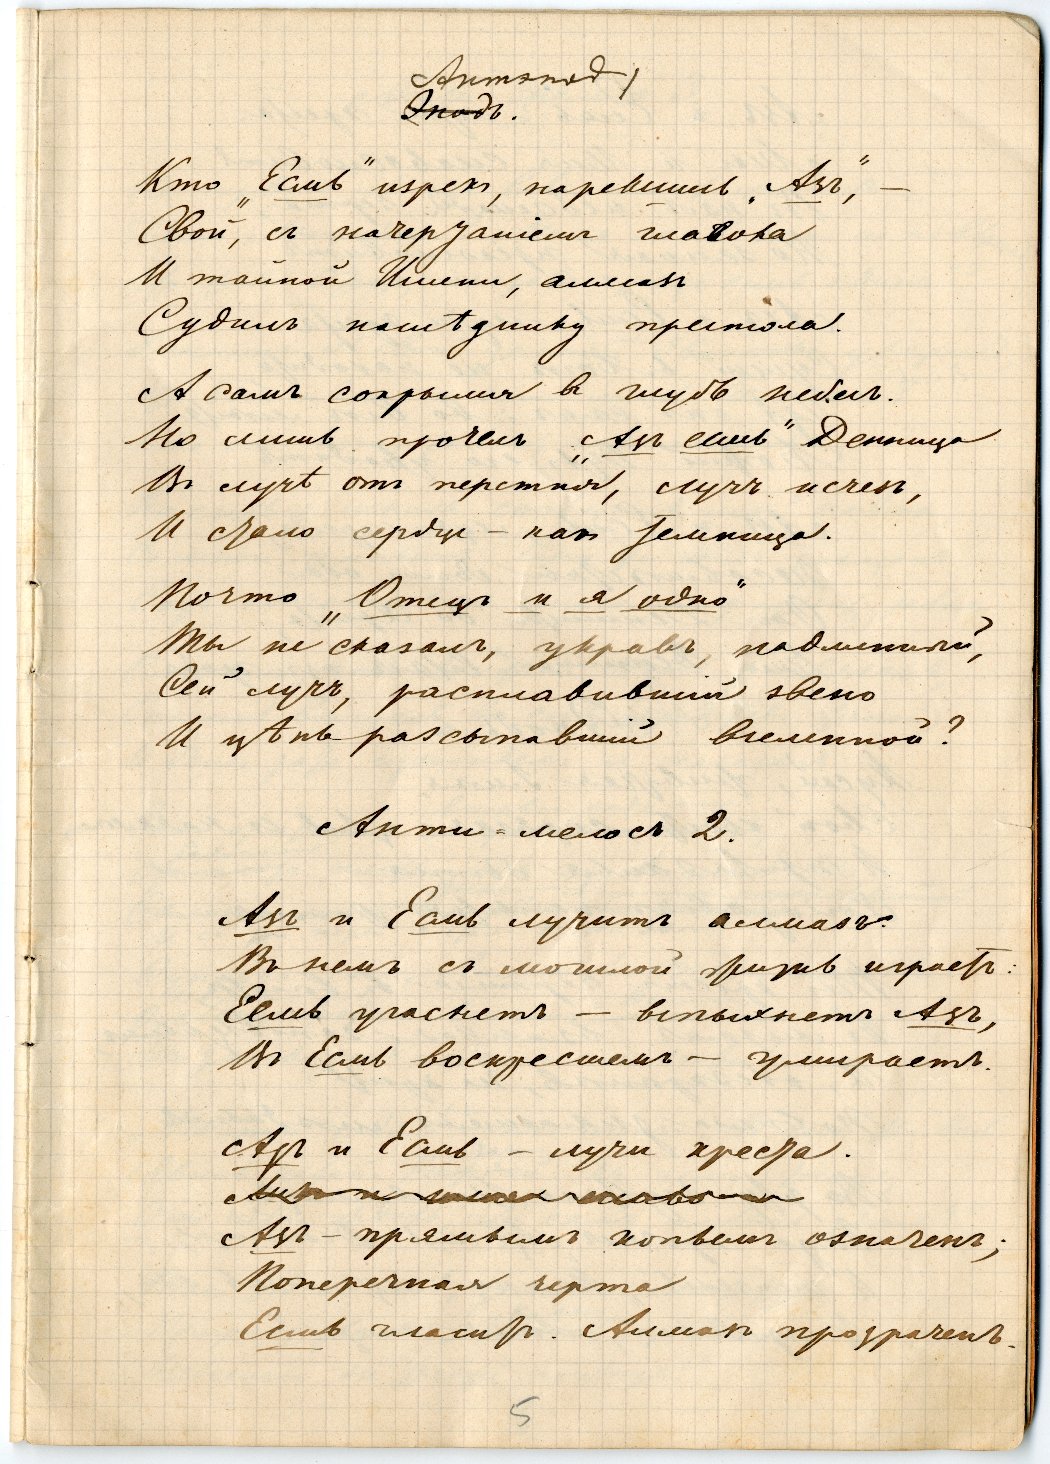 Антэпод
Эподъ.
Кто „Есмь“ изрекъ, нарекшись „Азъ“, —
Свой, съ начертаніемъ глагола
И тайной Имени, алмазъ
Судилъ наслѣднику престола.
А самъ сокрылся в глубь небесъ.
Но лишь прочелъ „Азъ есмь“ Денница
Въ лучѣ отъ перстня, лучъ исчезъ,
И стало сердце — какъ темница.
Почто „Отецъ и я одно“
Ты не сказалъ, укравъ, надменный,
Сей лучъ, расплавившій звено
И цѣпь разсыпавшій вселенной?
Анти-мелосъ 2.
Азъ и Есмь лучитъ алмазъ:
Въ немъ съ могилой жизнь играетъ:
Есмь угаснетъ — вспыхнетъ Азъ,
Въ Есмь воскресшемъ — умираетъ.
Азъ и Есмь — лучи креста.
Азъ — прямымъ копьемъ означенъ;
Поперечная черта
Есмь гласитъ. Алмазъ прозраченъ.
5